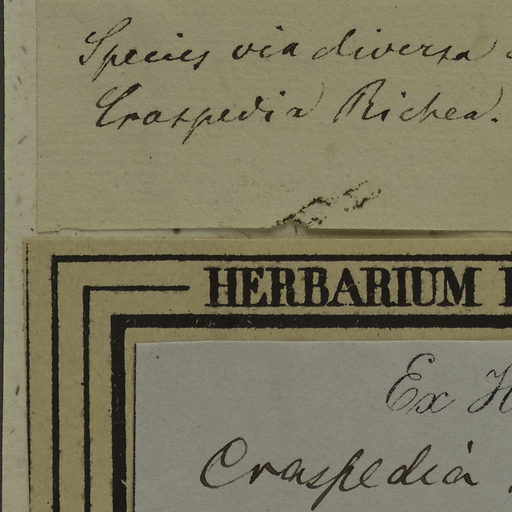 Species via diversa
Craspedia Richea.
HERBARIUM
Ex H
Craspedia